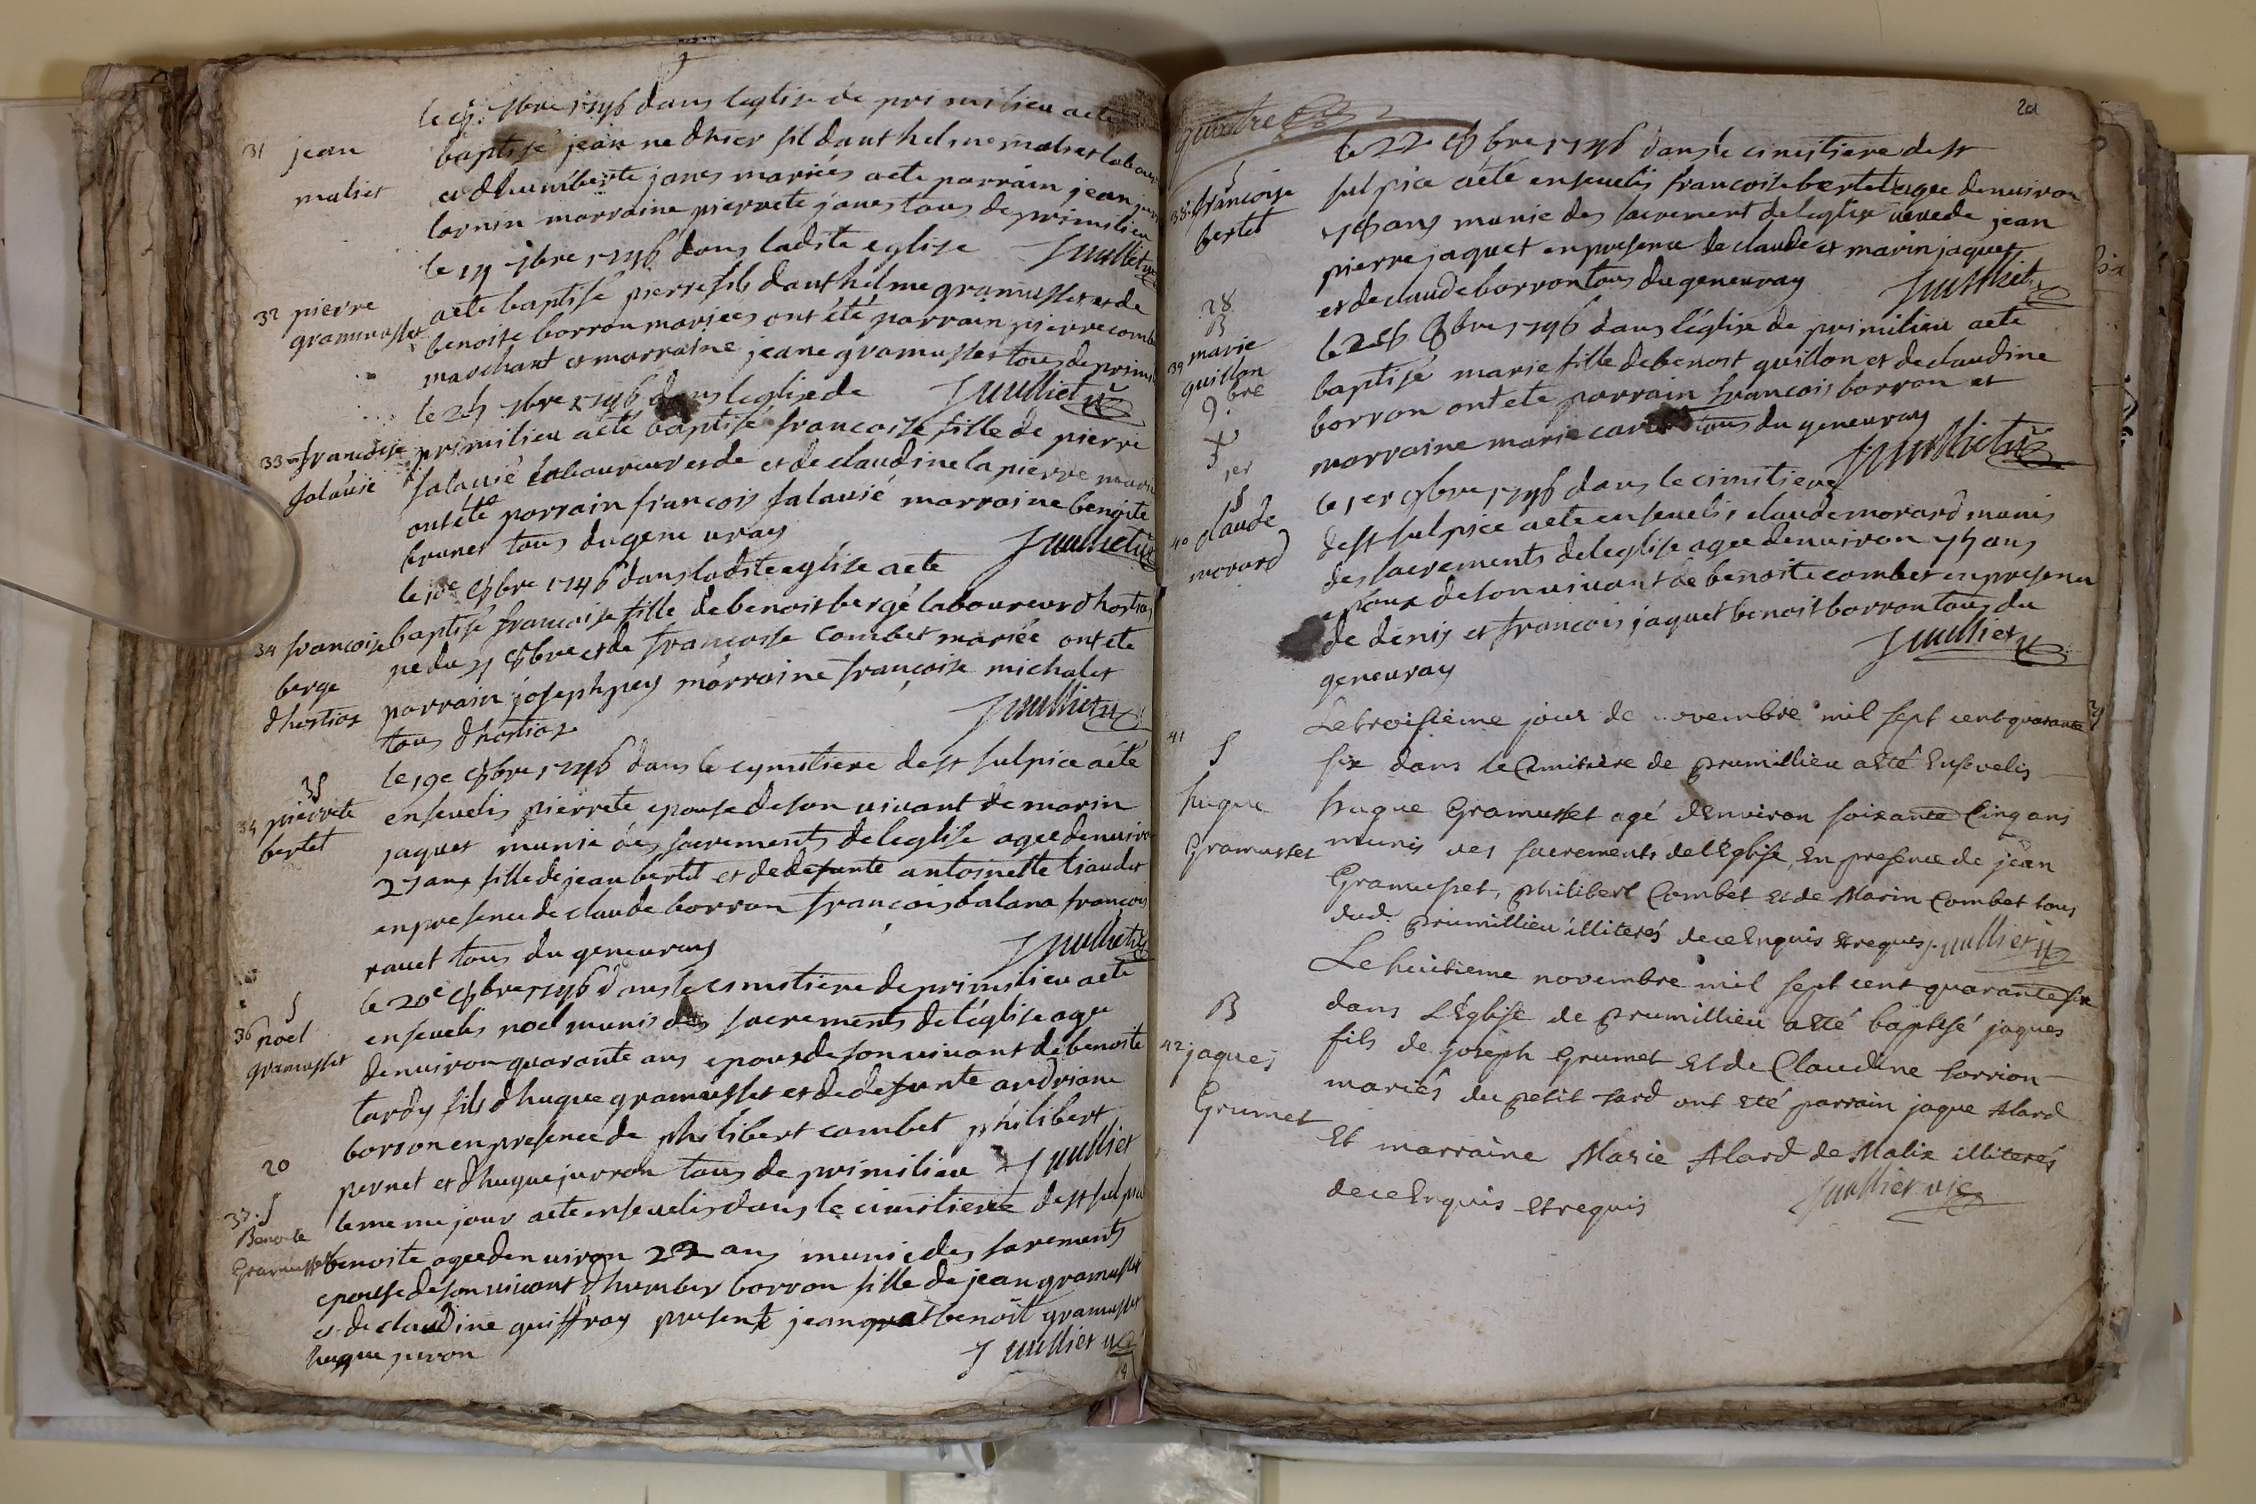 31 jean
malier
7bre 1746 dans leglise de primilieu aete
baptisé jean ne dhier fil danthelme malier
et dhumberte janes mariés aete parrain jean
marraine pierrete janes tous de primilieu
le 17 7bre 1746 dans ladite eglise Juillet
32 pierre
gramusset
aete baptise pierre fils danthelme gramusset et de
benoite borron mariees ont été parrain pierre combe
marchant et marraine jeane gramusset tous de primi
le 25 7bre 1746 dans leglise de Juilliet
33 francoise
falavie
primilieu aeté baptisé francoise fille de pierre
falavié laboureur et de et de claudine la pierre
ont été parrain francois falavié marraine benoite
brunet tous du geneuray Juilliet
le 10e 8bre 1746 dans ladite eglise aete
34 francoise
berge
dhostiaz
baptisé francoise fille de benoit bergé laboureur dhostiaz
ne du 8bre et de francoise combet mariée ont ete
parrain joseph pey marraine françoise michalet
tous dhostiaz Juilliet
le 19e 8bre 1746 dans le cymitiere de st sulpice aété
35
34 pierrete
bertet
ensevelis pierrete epouse de son vivant de marin
jaquet munie des sacrements de leglise agee denuiron
27 ans fille de jean bertet et de defunte antoinette
en presence de claude borron françois balana françois
ravet tous du geneuray Juilliet
le 20e 8bre 1746 dans le cimitiere de primilieu aete
S
36 noel
gramusset
ensevelis noel munis des sacrements de léglise age
denuiron quarante ans epoux de son vivant de benoite
tardy fils dhugue gramusset et de defunte andriane
borron en presence de philibert combet philibert
pernet et dhugue jurron tous de primilieu Juilliet
20
37 S
Benoite
Gramusset
le meme jour aete ensevelis dans le cimitiere de st sulpice
benoite agee denuiron 22 ans munie des sacrements
epouse de son vivant dhumber borron fille de jean gramusset
et de claudine guiffray present jean benoit gramusset
hugue juron Juilliet
20
le 22 8bre 1746 dans le cimitiere de st
S
38 francoise
bertet
sulpice aété ensevelis francoise bertet agee denuiron
ans munie des sacrement de leglise veuve de jean
pierre jaquet en presence de claude et marin jaquet
et de claude borron tous du geneuray Juilliet
28
B
39 marie
guillon
9bre
le 8bre 1746 dans léglise de primilieu aete
baptisé marie fille de benoit guillon et de claudine
borron ont ete parrain francois borron et
marraine marie tous du geneuray Juilliet
1er
S
40 claude
morard
le 1er 9bre 1746 dans le cimitiere
de st sulpice aete ensevelis claude morard munis
des sacrements de leglise agee denuiron 75 ans
epoux de son vivant de benoite combet en presence
de denis et francois jaquet benoit borron tous du
geneuray Juilliet
41
S
hugue
Gramusset
Le troisieme jour de novembre mil sept cent quarante
six dans le Cimitière de prumillieu a Eté Ensevelis
hugue Gramusset agé dEnviron soixante Cinq ans
munis des sacrements de lEglise En presence de jean
Gramusset, philibert Combet et de Marin Combet tous
dud. prumillieu illiterés de ce Enquis et requis Juilliet
B
42 jaques
Grumet
Le huitieme novembre mil sept cent quarante six
dans LEglise de prumillieu a Eté baptisé jaques
fils de joseph Grumet Et de Claudine
mariés du petit ont Eté parrain jaque Alard
Et marraine Marie Alard de Malix illiterés
de ce Enquis et requis Juilliet vic